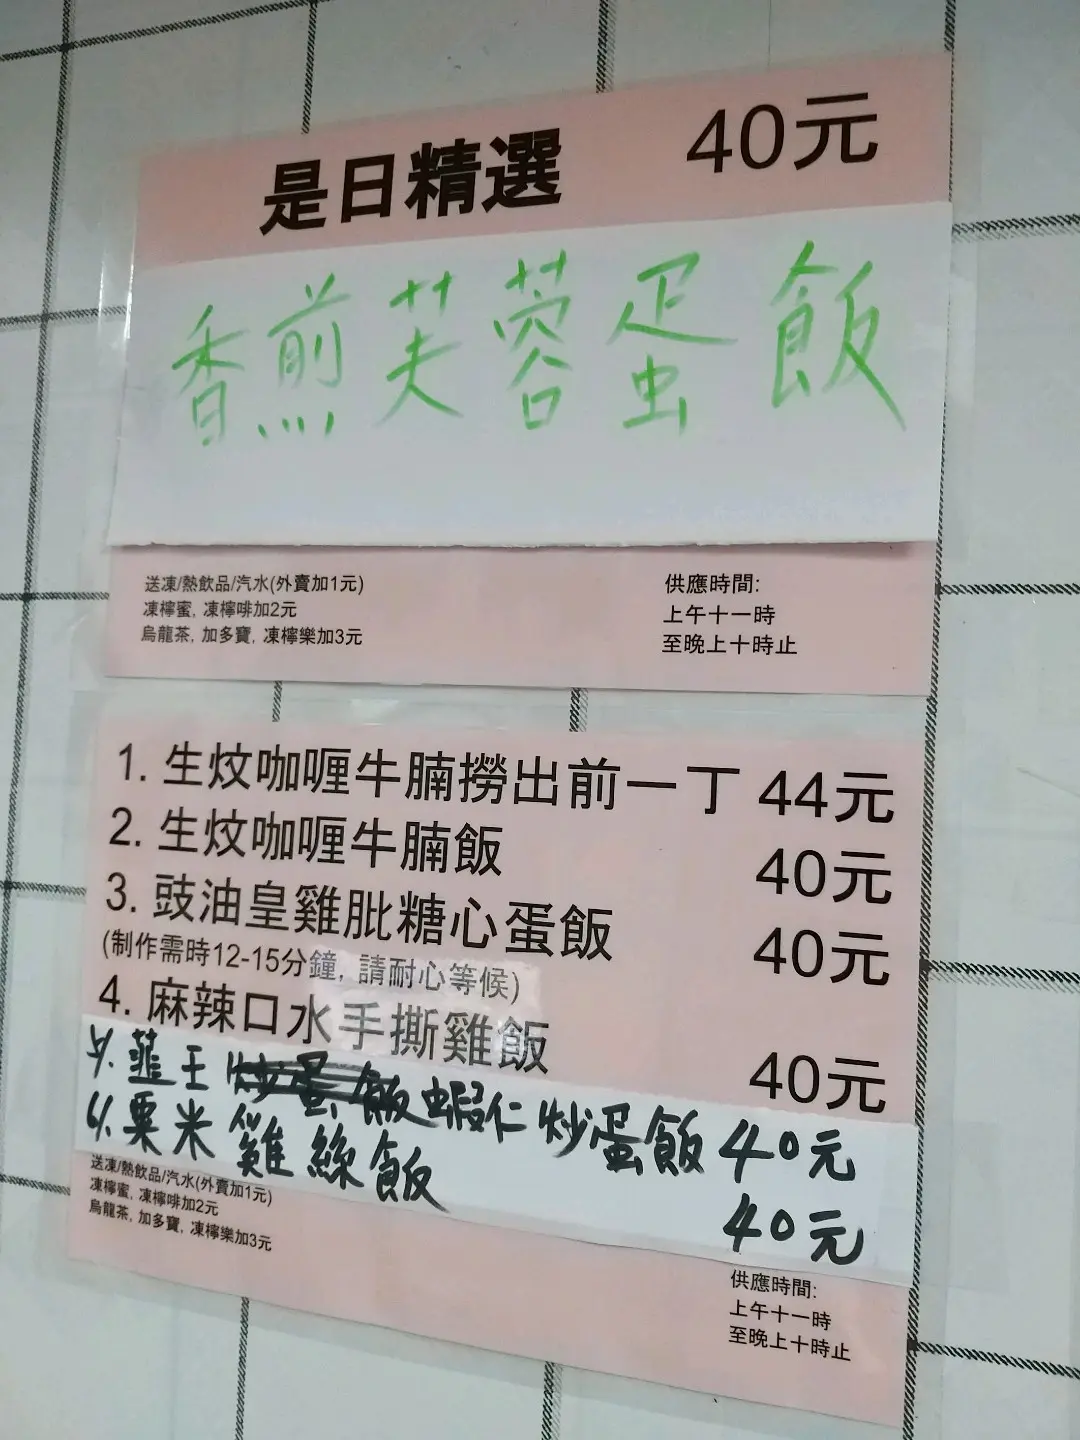 是日精選 40元
香煎芙蓉蛋飯
送凍/熱飲品/汽水(外賣加1元)
凍檸蜜, 凍檸啡加2元
烏龍茶, 加多寶, 凍檸樂加3元
供應時間:
上午十一時
至晚上十時止
1. 生炆咖喱牛腩撈出前一丁 44元
2. 生炆咖喱牛腩飯 40元
3. 豉油皇雞肶糖心蛋飯 40元
(制作需時12-15分鐘, 請耐心等候)
4. 麻辣口水手撕雞飯 40元
韮王蝦仁炒蛋飯 40元
粟米雞絲飯 40元
送凍/熱飲品/汽水(外賣加1元)
凍檸蜜, 凍檸啡加2元
烏龍茶, 加多寶, 凍檸樂加3元
供應時間:
上午十一時
至晚上十時止